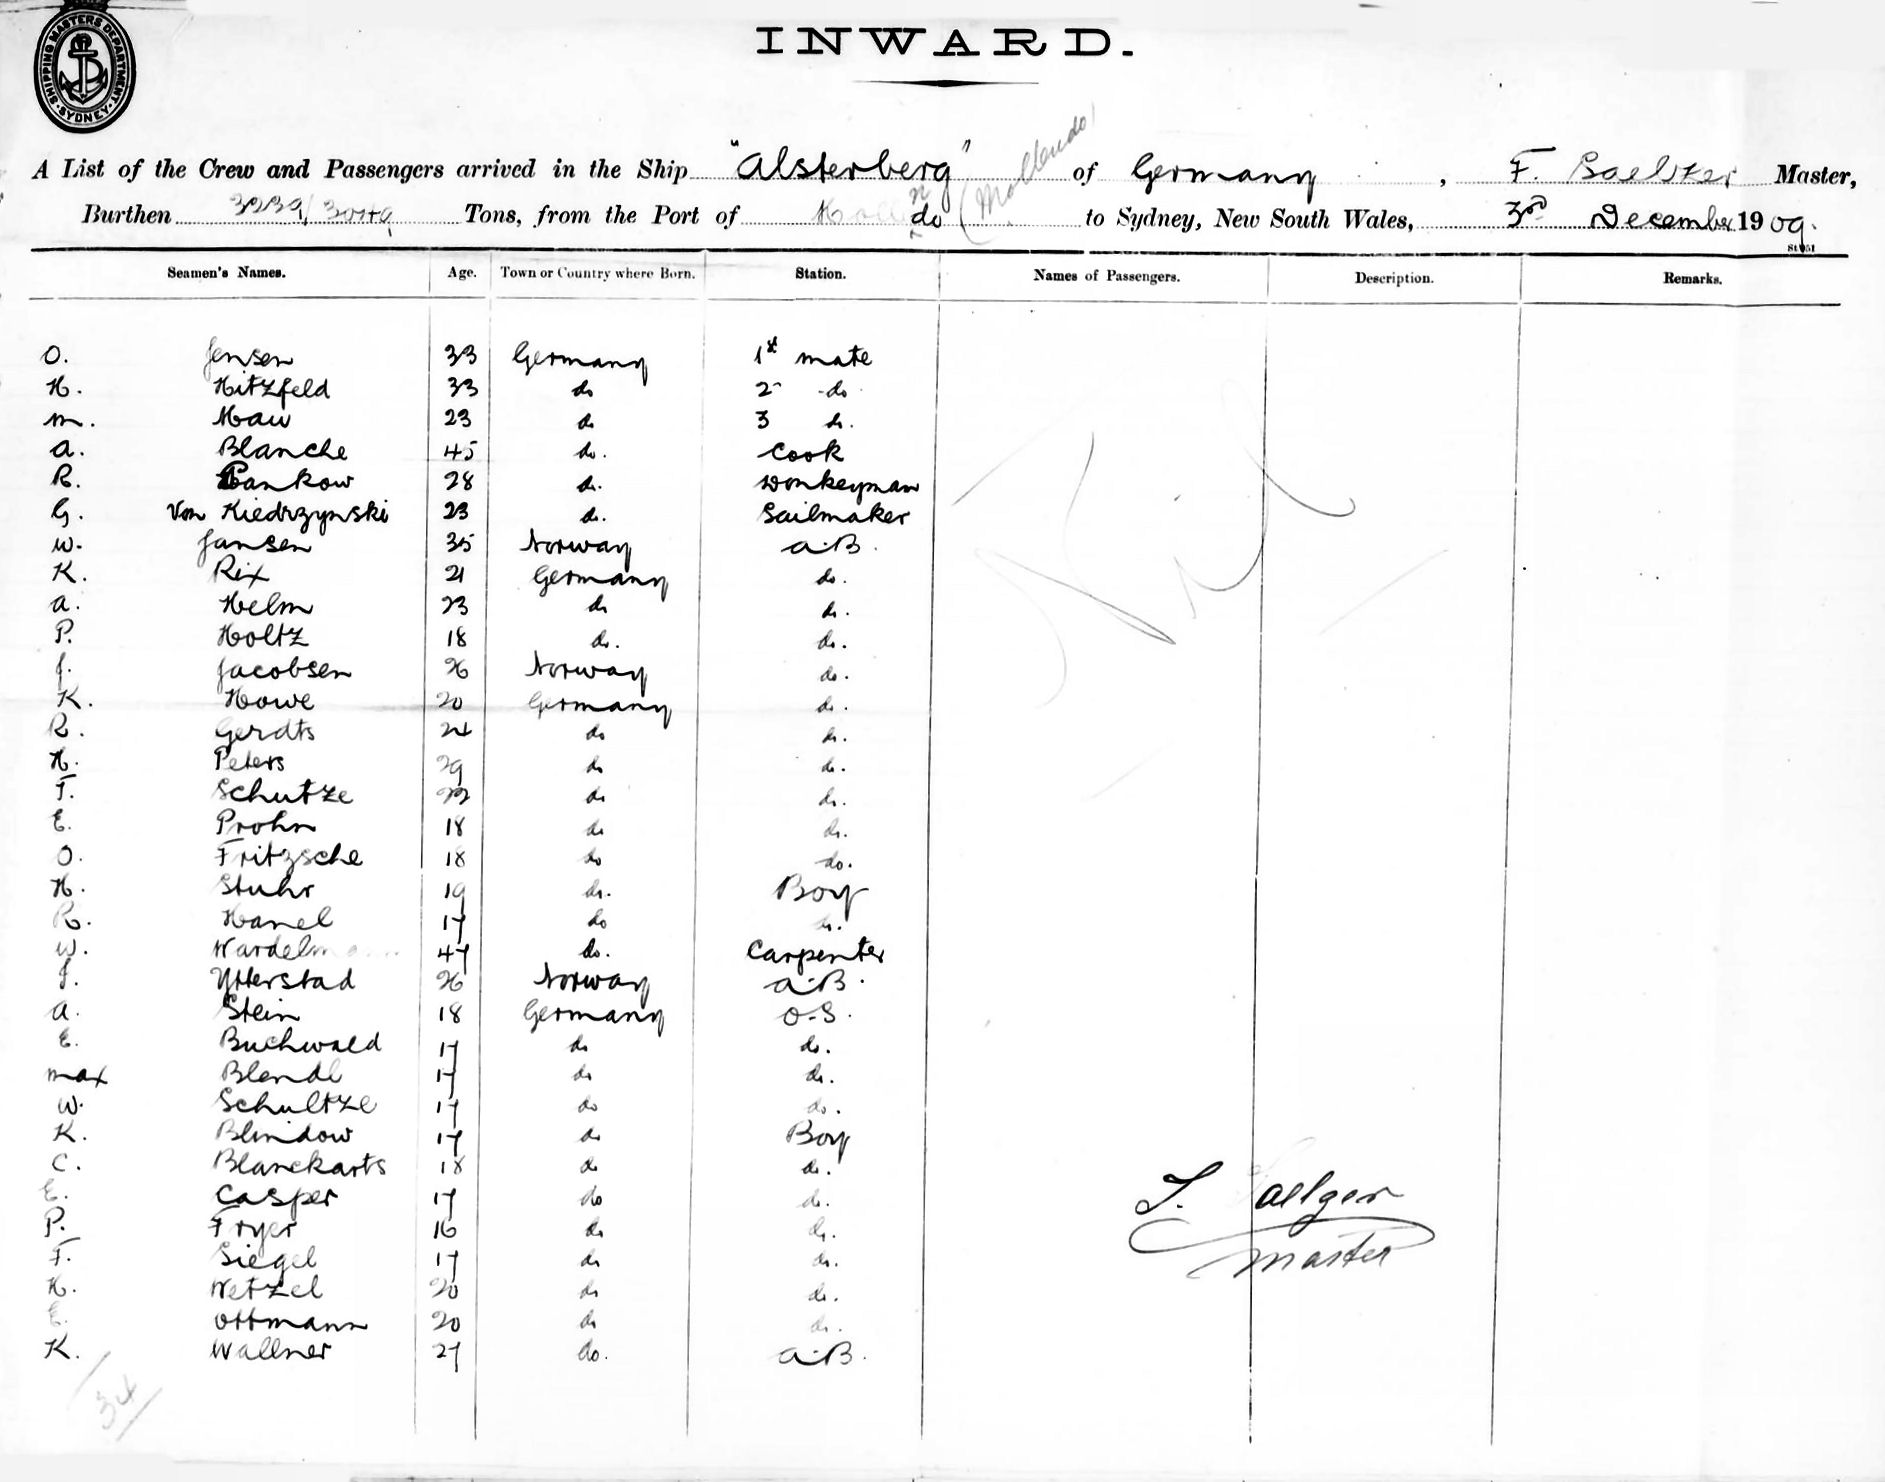 SHIPPING MASTERS DEPARTMENT · SYDNEY ·
INWARD.
(Mollendo)
A List of the Crew and Passengers arrived in the Ship "Alsterberg" of Germany , F. Baelzer Master,
Burthen 3239/3049 Tons, from the Port of do to Sydney, New South Wales, 3rd December 1909.
Seamen's Names. Age. Town or Country where Born. Station. Names of Passengers. Description. Remarks.
O. Jensen 33 Germany 1st mate
H. Hitzfeld 33 do 2 do
m. Mau 23 do 3 do.
a. Blanche 45 do. Cook
R. Pankow 28 do. Donkeyman
G. Von Kiedrzynski 23 do. Sailmaker
W. Jansen 35 Norway a.B.
K. Rix 21 Germany do.
a. Helm 23 do do.
P. Holtz 18 do. do.
J. Jacobsen 26 Norway do.
K. Howe 20 Germany do.
R. Gerdts 24 do do.
H. Peters 29 do do.
F. Schutze 22 do do.
E. Prohn 18 do do.
O. Fritzsche 18 do do.
H. Stuhr 19 do. Boy
R. Hanel 17 do do.
W. 47 do. Carpenter
J. Ytterstad 26 Norway a.B.
a. Stein 18 Germany O.S.
E. Buchwald 17 do do.
max Blendl 17 do do.
W. Schultze 17 do do.
K. Blindow 17 do Boy
C. Blanckarts 18 do do.
E. Casper 17 do do.
P. Fryer 16 do do.
F. Siegel 17 do do.
H. Wetzel 20 do do.
E. Ottmann 20 do do.
K. Wallner 27 do. a.B.
Nil
master
34